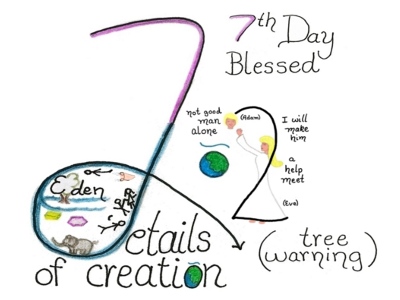 7th Day
Blessed
not good
man
alone
(Adam)
I will
make
him
a
help
meet
(Eve)
Eden
Details
of creation
tree
(warning)